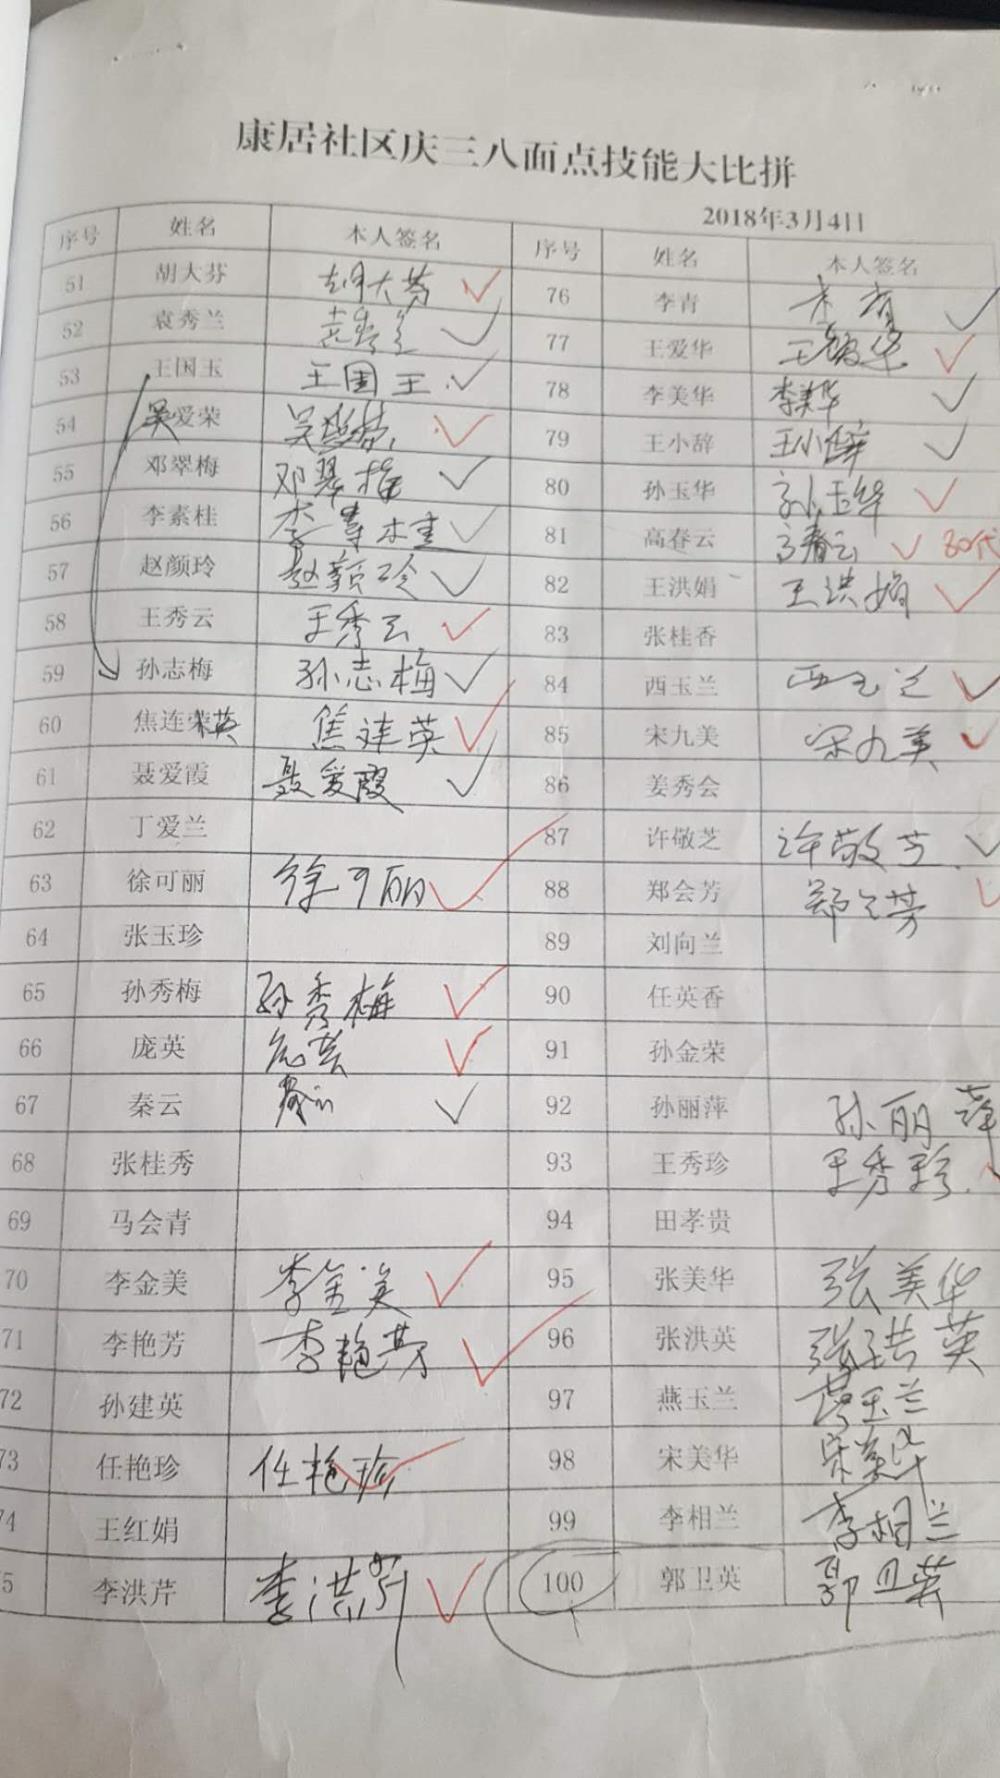 康居社区庆三八面点技能大比拼
2018年3月4日
序号 姓名 本人签名 序号 姓名 本人签名
51 胡大芬 胡大芬 76 李青 李青
52 袁秀兰 袁秀兰 77 王爱华 王爱华
53 王国玉 王国玉 78 李美华 李美华
54 吴爱荣 吴爱荣 79 王小辞 王小辞
55 邓翠梅 邓翠梅 80 孙玉华 孙玉华
56 李素桂 李素桂 81 高春云 高春云 80代
57 赵颜玲 赵颜玲 82 王洪娟 王洪娟
58 王秀云 王秀云 83 张桂香
59 孙志梅 孙志梅 84 西玉兰 西玉兰
60 焦连荣英 焦连英 85 宋九美 宋九美
61 聂爱霞 聂爱霞 86 姜秀会
62 丁爱兰 87 许敬芝 许敬芝
63 徐可丽 徐可丽 88 郑会芳 郑会芳
64 张玉珍 89 刘向兰
65 孙秀梅 孙秀梅 90 任英香
66 庞英 庞英 91 孙金荣
67 秦云 秦云 92 孙丽萍 孙丽萍
68 张桂秀 93 王秀珍 王秀珍
69 马会青 94 田孝贵
70 李金美 李金美 95 张美华 张美华
71 李艳芳 李艳芳 96 张洪英 张洪英
72 孙建英 97 燕玉兰 燕玉兰
73 任艳珍 任艳珍 98 宋美华 宋美华
74 王红娟 99 李相兰 李相兰
5 李洪芹 李洪芹 100 郭卫英 郭卫英